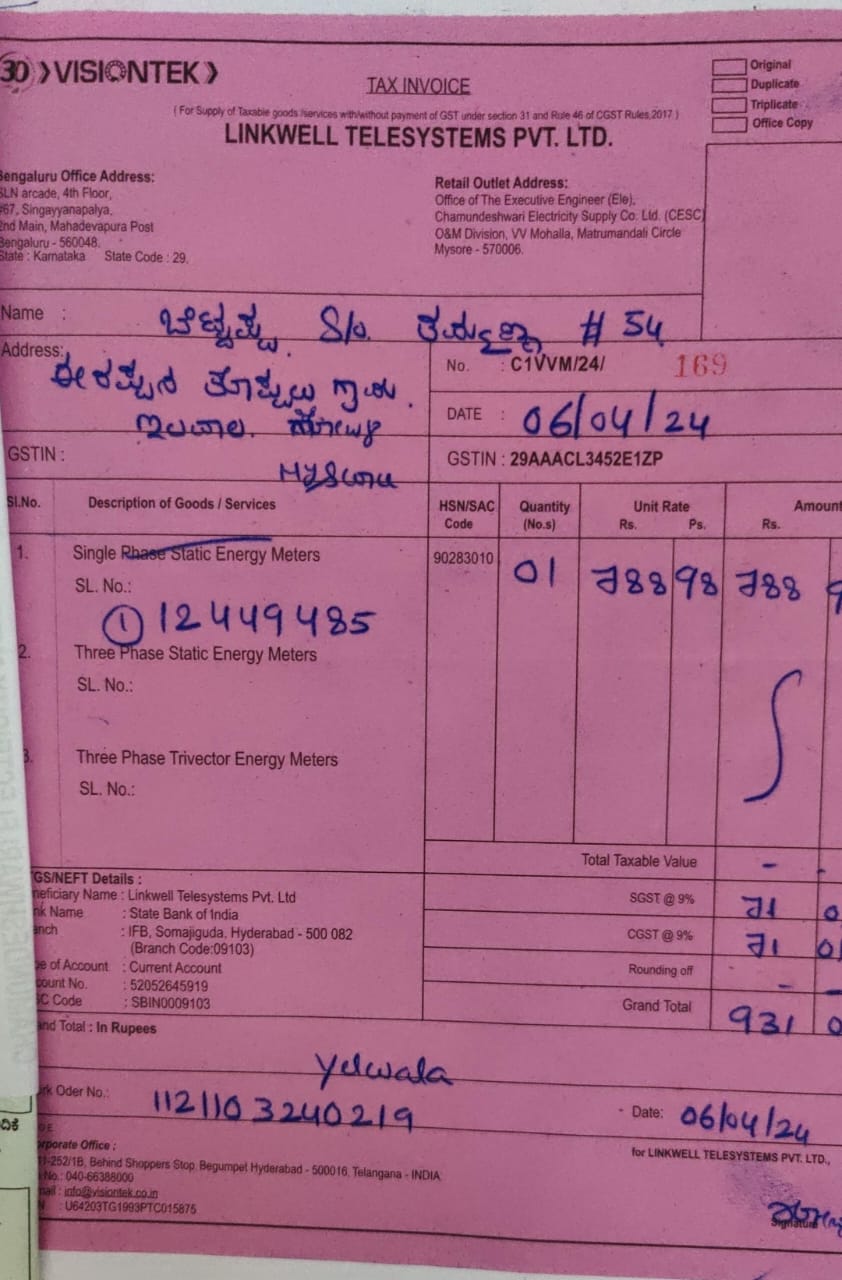 30 VISIONTEK
TAX INVOICE
Original
Duplicate
Triplicate
Office Copy
( For Supply of Taxable goods /services with/without payment of GST under section 31 and Rule 46 of CGST Rules,2017 )
LINKWELL TELESYSTEMS PVT. LTD.
Bengaluru Office Address:
SLN arcade, 4th Floor,
#67, Singayyanapalya,
2nd Main, Mahadevapura Post
Bengaluru - 560048.
State : Karnataka State Code : 29.
Retail Outlet Address:
Office of The Executive Engineer (Ele),
Chamundeshwari Electricity Supply Co. Ltd. (CESC)
O&M Division, VV Mohalla, Matrumandali Circle
Mysore - 570006.
Name : S/o. # 54
Address:
No. : C1VVM/24/ 169
DATE : 06/04/24
GSTIN :
GSTIN : 29AAACL3452E1ZP
Sl.No. Description of Goods / Services HSN/SAC Code Quantity (No.s) Unit Rate Rs. Ps. Amount Rs.
1. Single Phase Static Energy Meters 90283010 01 788 98 788
SL. No.:
① 12449485
2. Three Phase Static Energy Meters
SL. No.:
3. Three Phase Trivector Energy Meters
SL. No.:
Total Taxable Value -
SGST @ 9% 71
CGST @ 9% 71
Rounding off - -
Grand Total 931
GS/NEFT Details :
neficiary Name : Linkwell Telesystems Pvt. Ltd
nk Name : State Bank of India
anch : IFB, Somajiguda, Hyderabad - 500 082
(Branch Code:09103)
pe of Account : Current Account
count No. : 52052645919
SC Code : SBIN0009103
and Total : In Rupees
Yelwala
rk Oder No.: 112110 3240219
- Date: 06/04/24
for LINKWELL TELESYSTEMS PVT. LTD.,
orporate Office :
11-252/1B, Behind Shoppers Stop, Begumpet Hyderabad - 500016, Telangana - INDIA
No.: 040-66388000
mail : info@visiontek.co.in
: U64203TG1993PTC015875
Signature